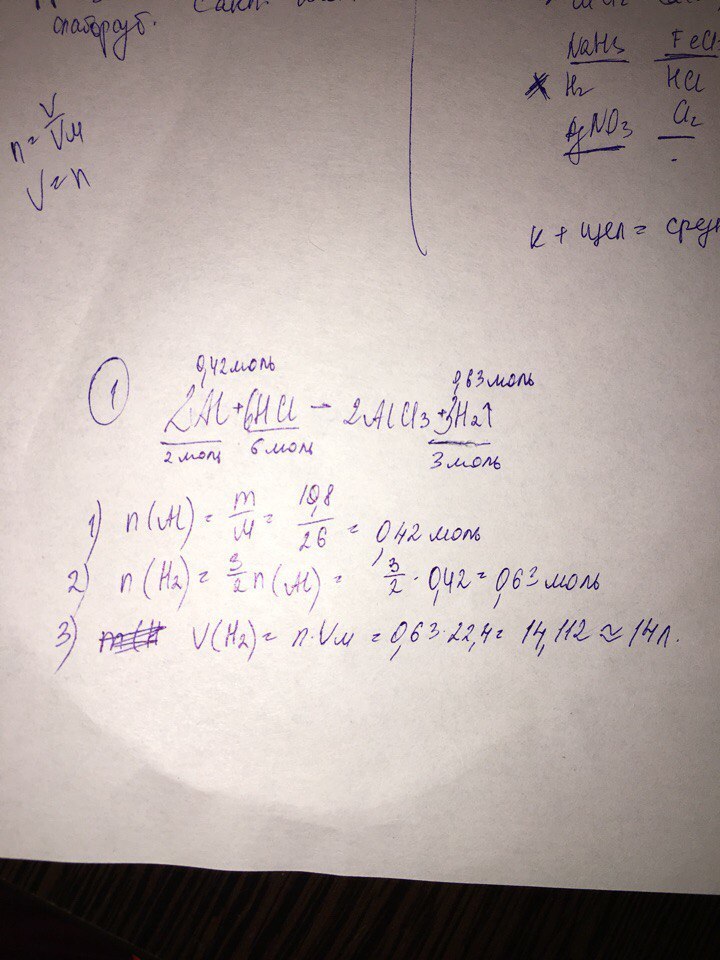 слаборуб.
NaH
H₂ HCl
AgNO₃ Cl₂
n = V/Vм
V = n
к + щел =
1
0,42моль 0,63моль
2Al + 6HCl – 2AlCl₃ + 3H₂↑
2моль 6моль 3моль
1) n(Al) = m/M = 10,8/26 = 0,42 моль
2) n(H₂) = 3/2 n(Al) = 3/2 · 0,42 = 0,63 моль
3) V(H₂) = n·Vм = 0,63·22,4 = 14,112 ≈ 14л.